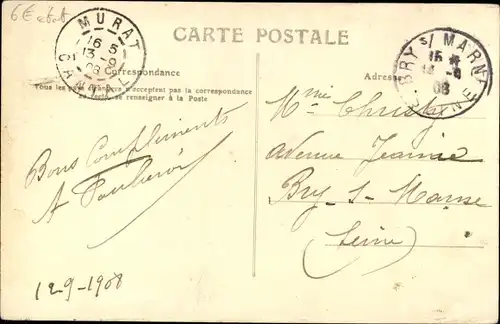 6€
MURAT
16 5
13-9
08
CARTE POSTALE
BRY s/ MARNE
15
08
Correspondance
Adresse
Tous les pays étrangers n'acceptent pas la correspondance
au recto, se renseigner à la Poste
Mme Christy
Avenue Jeanne
Bry-s-Marne
(Seine)
Bons Compliments
A
12-9-1908